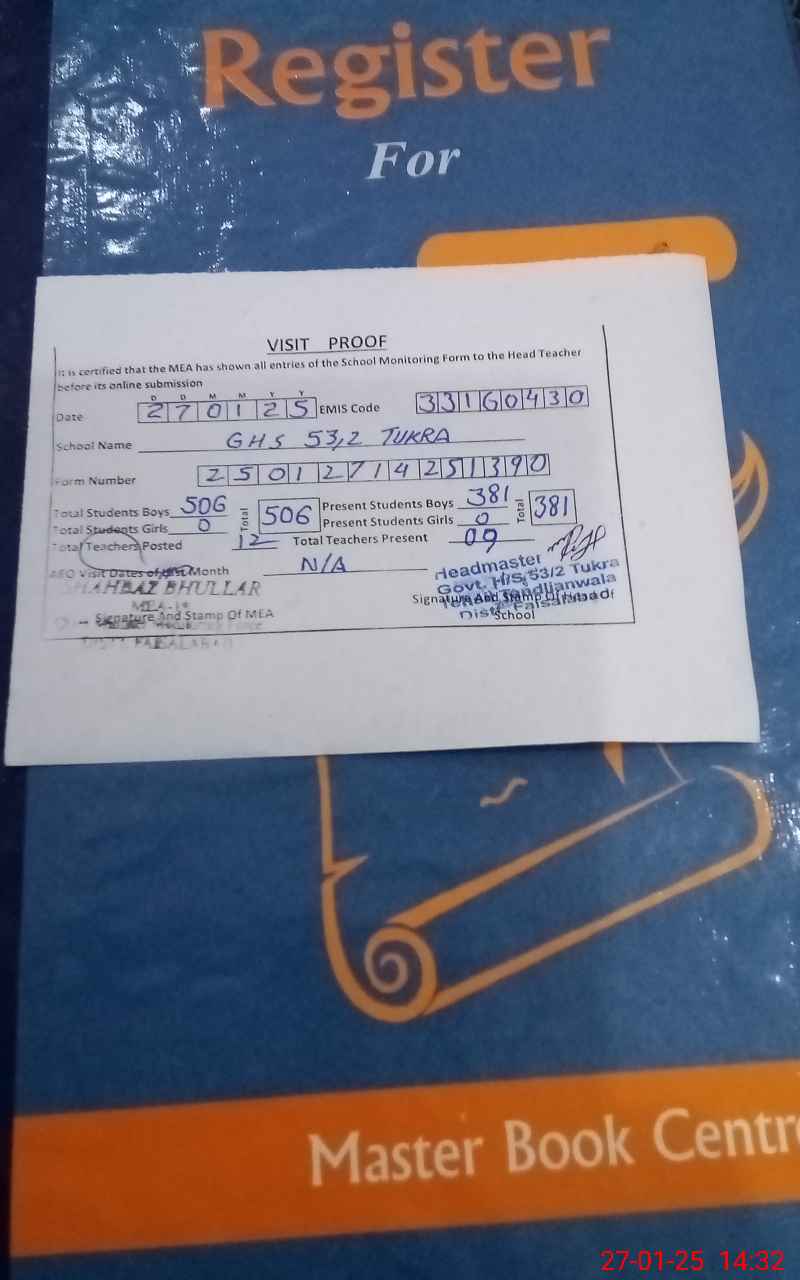 Register
For
VISIT PROOF
It is certified that the MEA has shown all entries of the School Monitoring Form to the Head Teacher
before its online submission
D D M M Y Y
Date 270125 EMIS Code 33160430
School Name GHS 53,2 TUKRA
Form Number 25012714251390
Total Students Boys 506 Total 506 Present Students Boys 381 Total 381
Total Students Girls 0 Present Students Girls 0
Total Teachers Posted 12 Total Teachers Present 09
AEO Visit Dates of last Month N/A
SHAHBAZ BHULLAR
MEA-
Signature And Stamp Of MEA
DISTT. FAISALABAD
Headmaster
Govt. H/S 53/2 Tukra
Tandlianwala
Distt. Faisalabad
Signature And Stamp Of Head Of
School
Master Book Centre
27-01-25 14:32